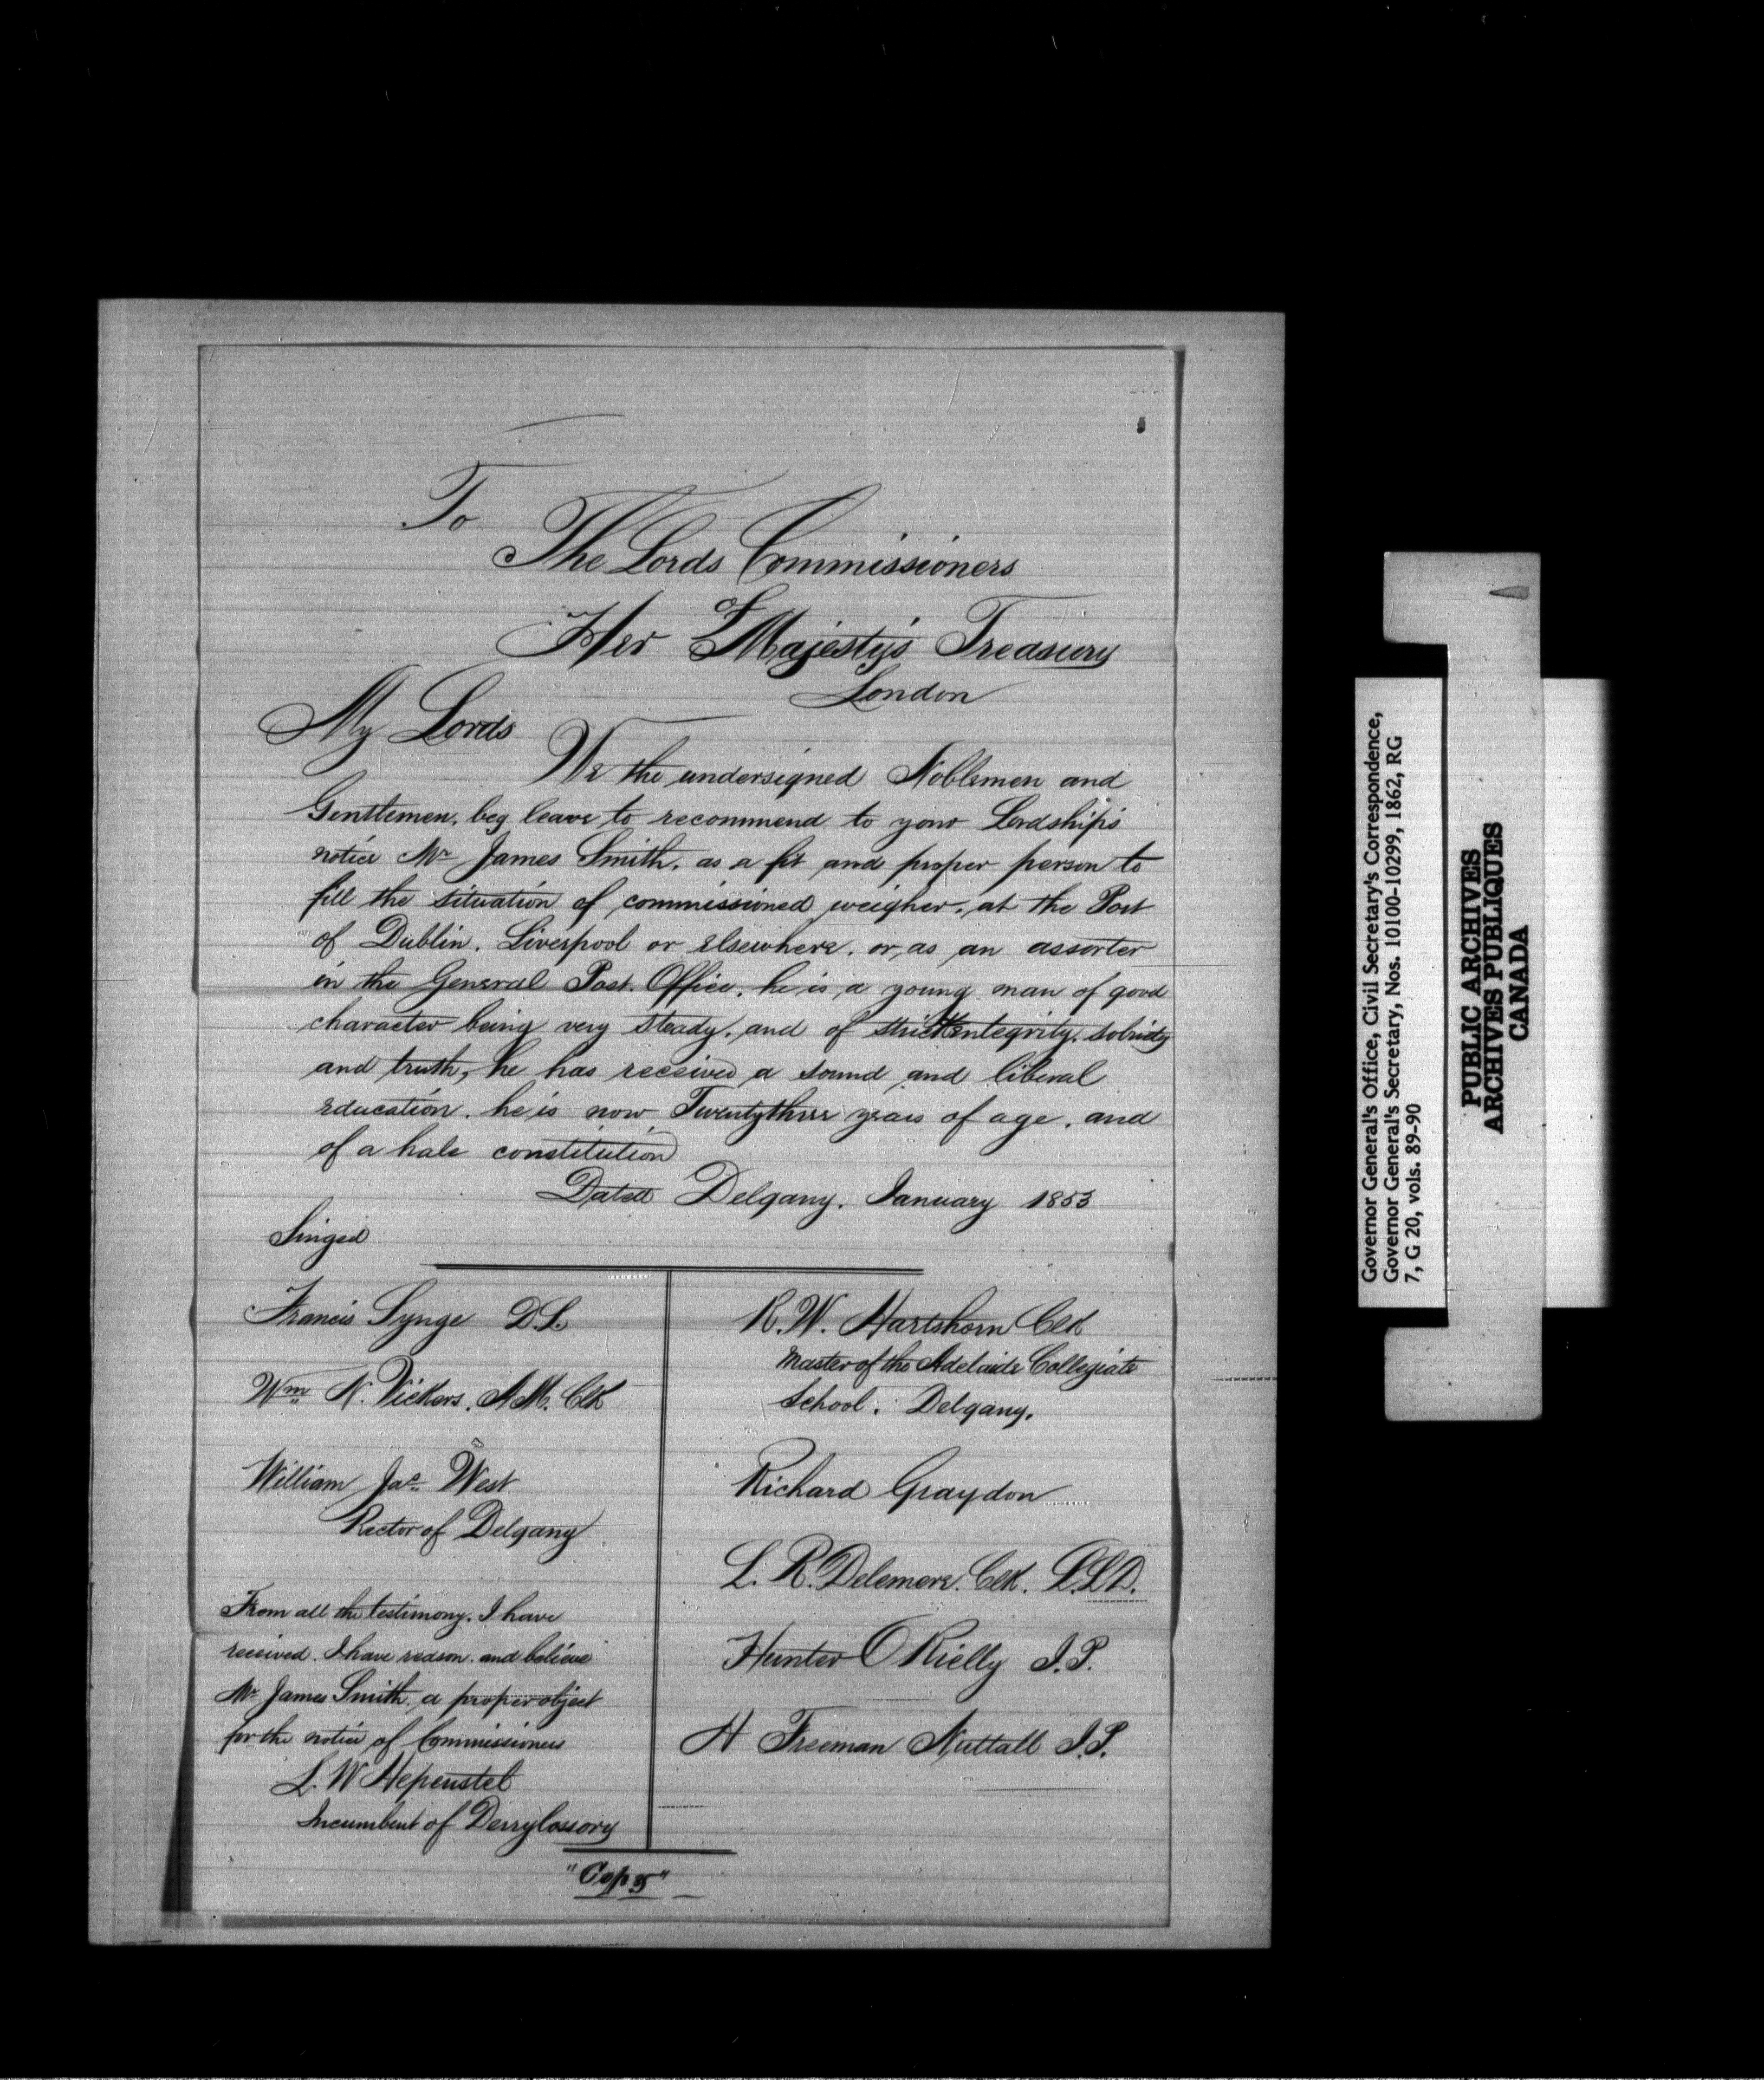 To
The Lords Commissioners
of
Her Majesty's Treasury
London
My Lords
We the undersigned Noblemen and
Gentlemen, beg leave to recommend to your Lordship's
notice Mr James Smith, as a fit and proper person to
fill the situation of commissioned weigher, at the Port
of Dublin, Liverpool or elsewhere, or, as an assorter
in the General Post Office, he is a young man of good
character being very steady, and of strict integrity, sobriety
and truth, he has received a sound and liberal
education, he is now Twentythree years of age, and
of a hale constitution
Dated Delgany, January 1853
Singed
Francis Synge D.L.
Wm N. Vickers, A.M. Clk
William Jac West
Rector of Delgany
From all the testimony, I have
received, I have reason and believe
Mr James Smith, a proper object
for the notice of Commissioners
L. W Hepenstel
Incumbent of Derrylossory
R. W. Hartshorn Clk
Master of the Adelaide Collegiate
School, Delgany.
Richard Graydon
L. R. Delemere. Clk. L.L.D.
Hunter O Rielly J.P.
H Freeman Nuttall J.P.
"Copy"
Governor General's Office, Civil Secretary's Correspondence,
Governor General's Secretary, Nos. 10100-10299, 1862, RG
7, G 20, vols. 89-90
PUBLIC ARCHIVES
ARCHIVES PUBLIQUES
CANADA